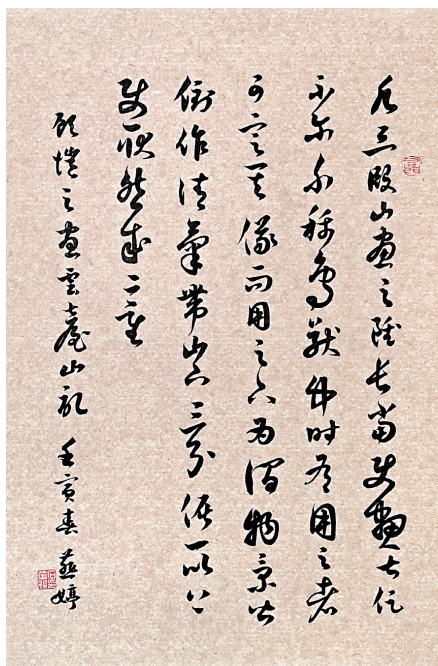 凡三段山畫之雖長當使畫甚促
不爾不稱鳥獸中時有用之者
可定其儀而用之下為澗物景皆
倒作清氣帶山下三分倨一以上
使耿然成二重
顧愷之畫雲臺山記 壬寅春 燕婷